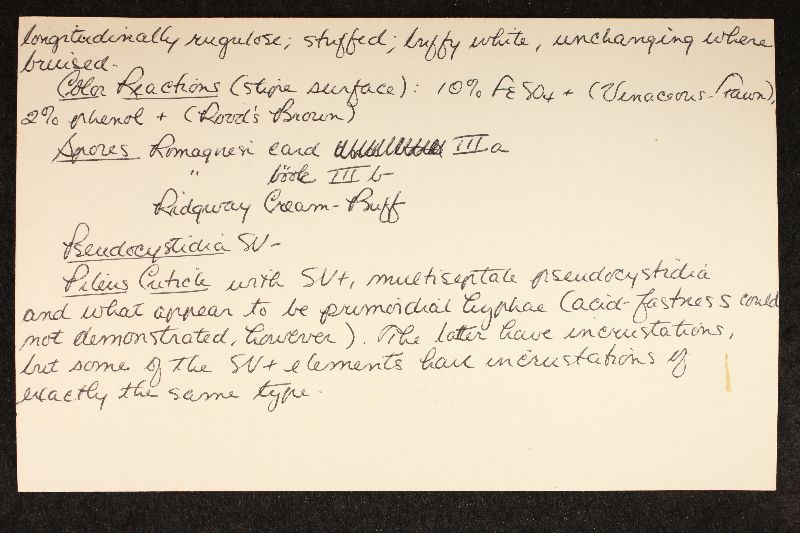 longitudinally rugulose; stuffed; buffy white, unchanging where
bruised.
Color Reactions (stipe surface): 10% FeSO4 + (Vinaceous-Fawn),
2% phenol + (Rood's Brown)
Spores Romagnesi card IIIa
" book IIIb
Ridgway Cream-Buff
Pseudocystidia SV-
Pileus Cuticle with SV+, multiseptate pseudocystidia
and what appear to be primordial hyphae (acid-fastness could
not demonstrated, however). The later have incrustations,
but some of the SV+ elements have incrustations of
exactly the same type.